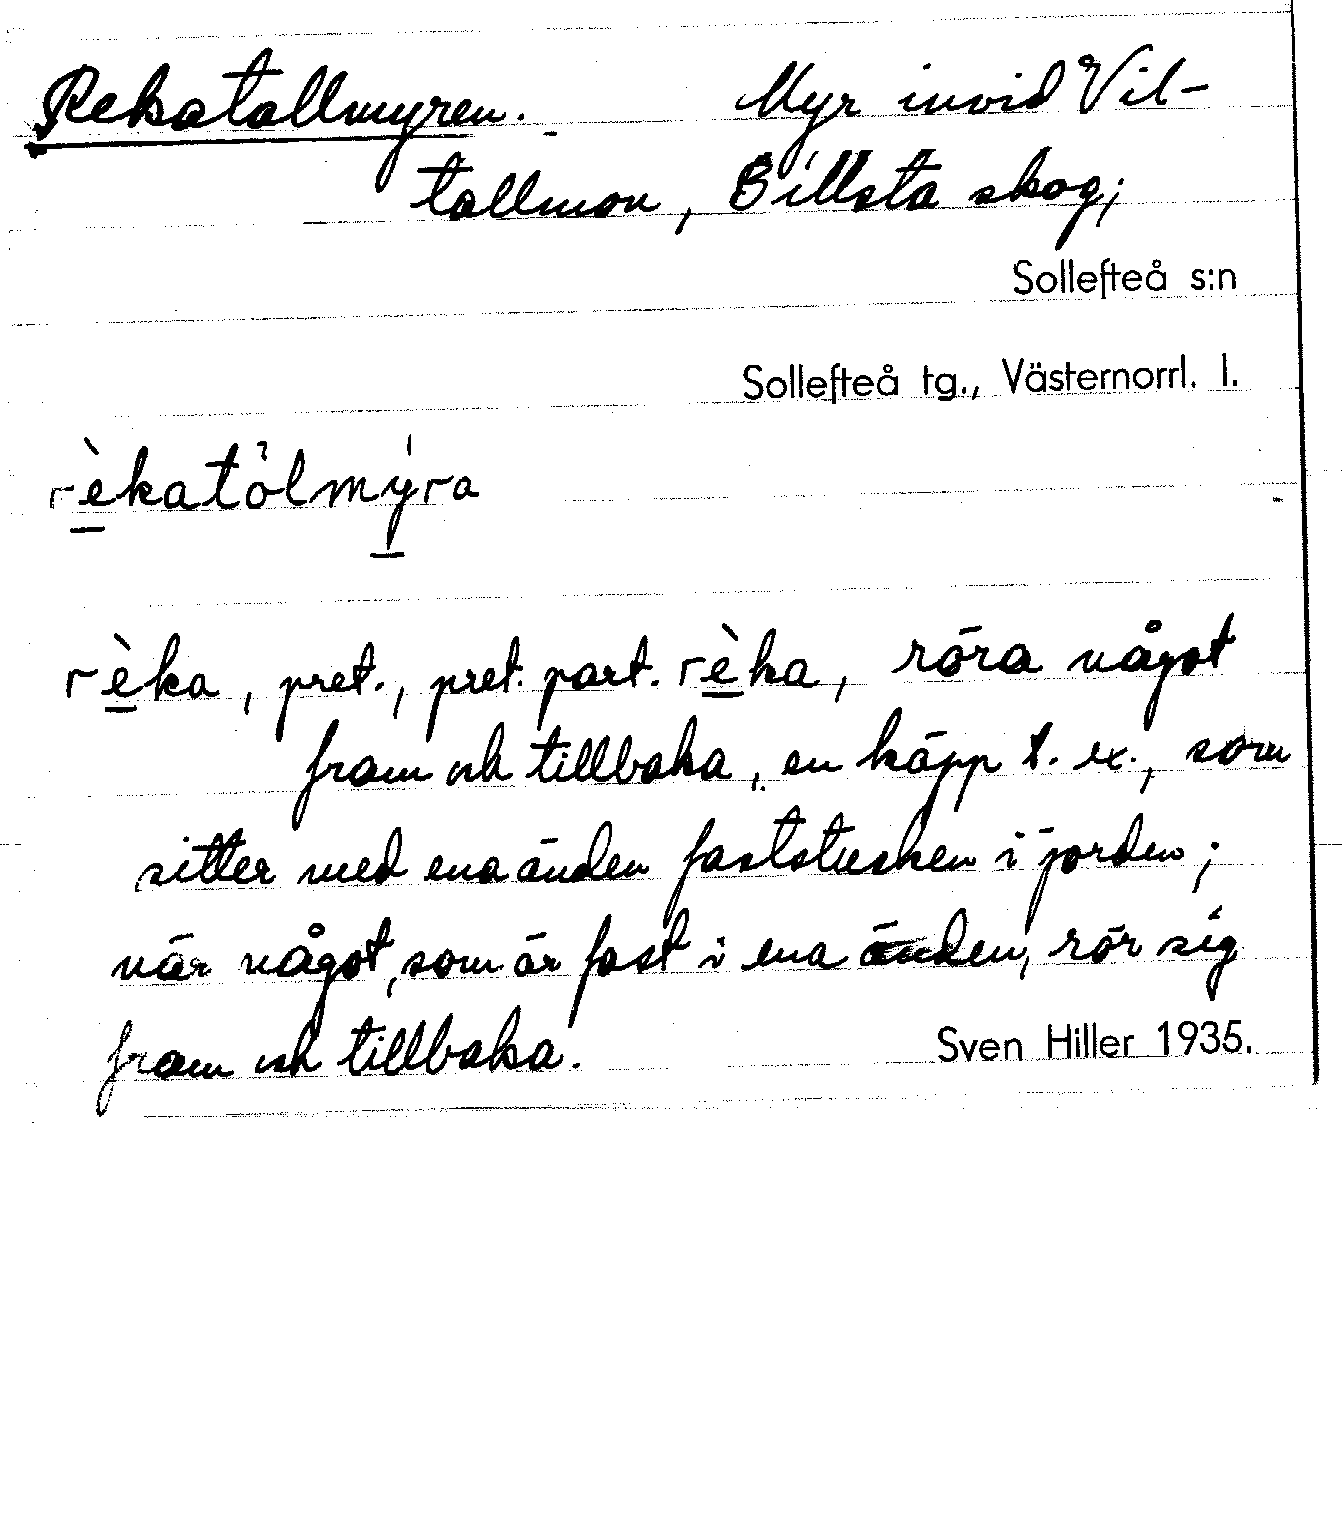 Rekatallmyren. Myr invid Vil-
tallmon, Billsta skog;
Sollefteå s:n
Sollefteå tg., Västernorrl. l.
rèkatòlmýra
rèka, pret., pret. part. rèka, röra något
fram och tillbaka, en käpp t. ex., som
sitter med ena änden faststucken i jorden;
när något, som är fast i ena änden, rör sig
fram och tillbaka. Sven Hiller 1935.